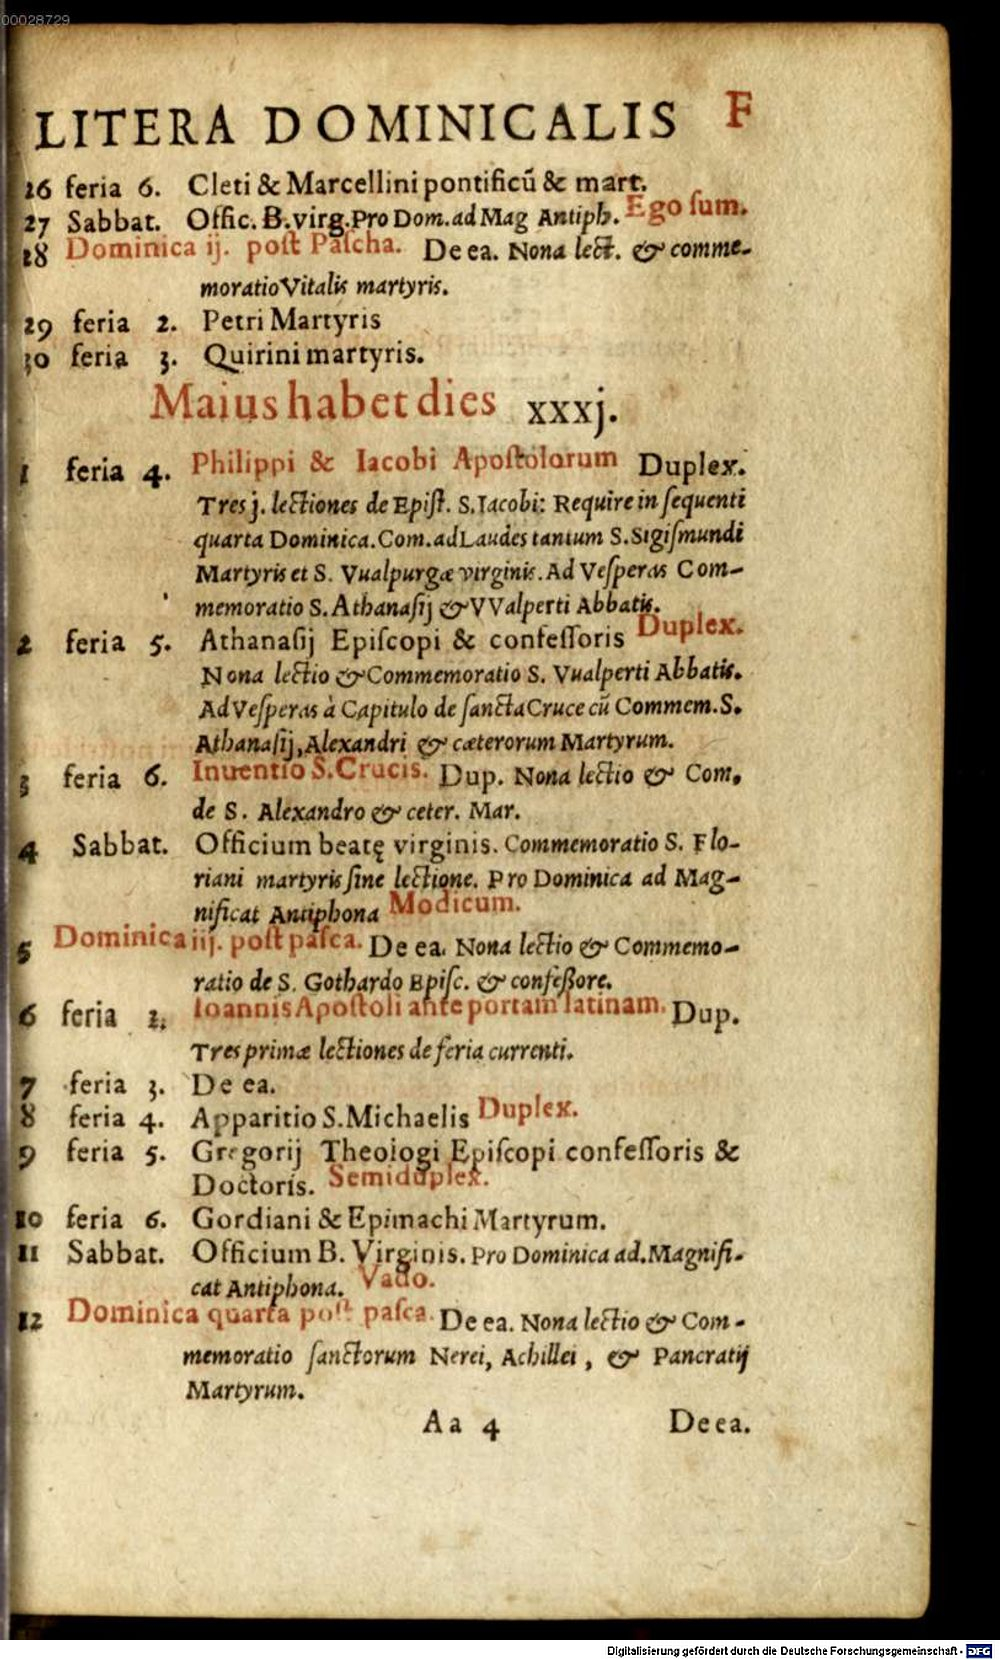 00028729
LITERA DOMINICALIS F
26 feria 6. Cleti & Marcellini pontificū & mart.
27 Sabbat. Offic. B. virg. Pro Dom. ad Mag Antiph. Ego ſum.
28 Dominica ij. poſt Paſcha. De ea. Nona lect. & comme-
moratio Vitalis martyris.
29 feria 2. Petri Martyris
30 feria 3. Quirini martyris.
Maius habet dies xxxj.
1 feria 4. Philippi & Iacobi Apoſtolorum Duplex.
Tres j. lectiones de Epiſt. S. Iacobi: Require in ſequenti
quarta Dominica. Com. ad Laudes tantum S. Sigiſmundi
Martyris et S. Vualpurgæ virginis. Ad Veſperas Com-
memoratio S. Athanaſij & VValperti Abbatis.
2 feria 5. Athanaſij Epiſcopi & confeſſoris Duplex.
Nona lectio & Commemoratio S. Vualperti Abbatis.
Ad Veſperas à Capitulo de ſancta Cruce cū Commem. S.
Athanaſij, Alexandri & cæterorum Martyrum.
3 feria 6. Inuentio S. Crucis. Dup. Nona lectio & Com.
de S. Alexandro & ceter. Mar.
4 Sabbat. Officium beatę virginis. Commemoratio S. Flo-
riani martyris ſine lectione. Pro Dominica ad Mag-
nificat Antiphona Modicum.
5 Dominica iij. poſt paſca. De ea. Nona lectio & Commemo-
ratio de S. Gothardo Epiſc. & confeſſore.
6 feria 2. Ioannis Apoſtoli ante portam latinam. Dup.
Tres primæ lectiones de feria currenti.
7 feria 3. De ea.
8 feria 4. Apparitio S. Michaelis Duplex.
9 feria 5. Gregorij Theologi Epiſcopi confeſſoris &
Doctoris. Semiduplex.
10 feria 6. Gordiani & Epimachi Martyrum.
11 Sabbat. Officium B. Virginis. Pro Dominica ad. Magnifi-
cat Antiphona. Vado.
12 Dominica quarta poſt paſca. De ea. Nona lectio & Com-
memoratio ſanctorum Nerei, Achillei, & Pancratij
Martyrum.
Aa 4 De ea.
Digitalisierung gefördert durch die Deutsche Forschungsgemeinschaft - DFG